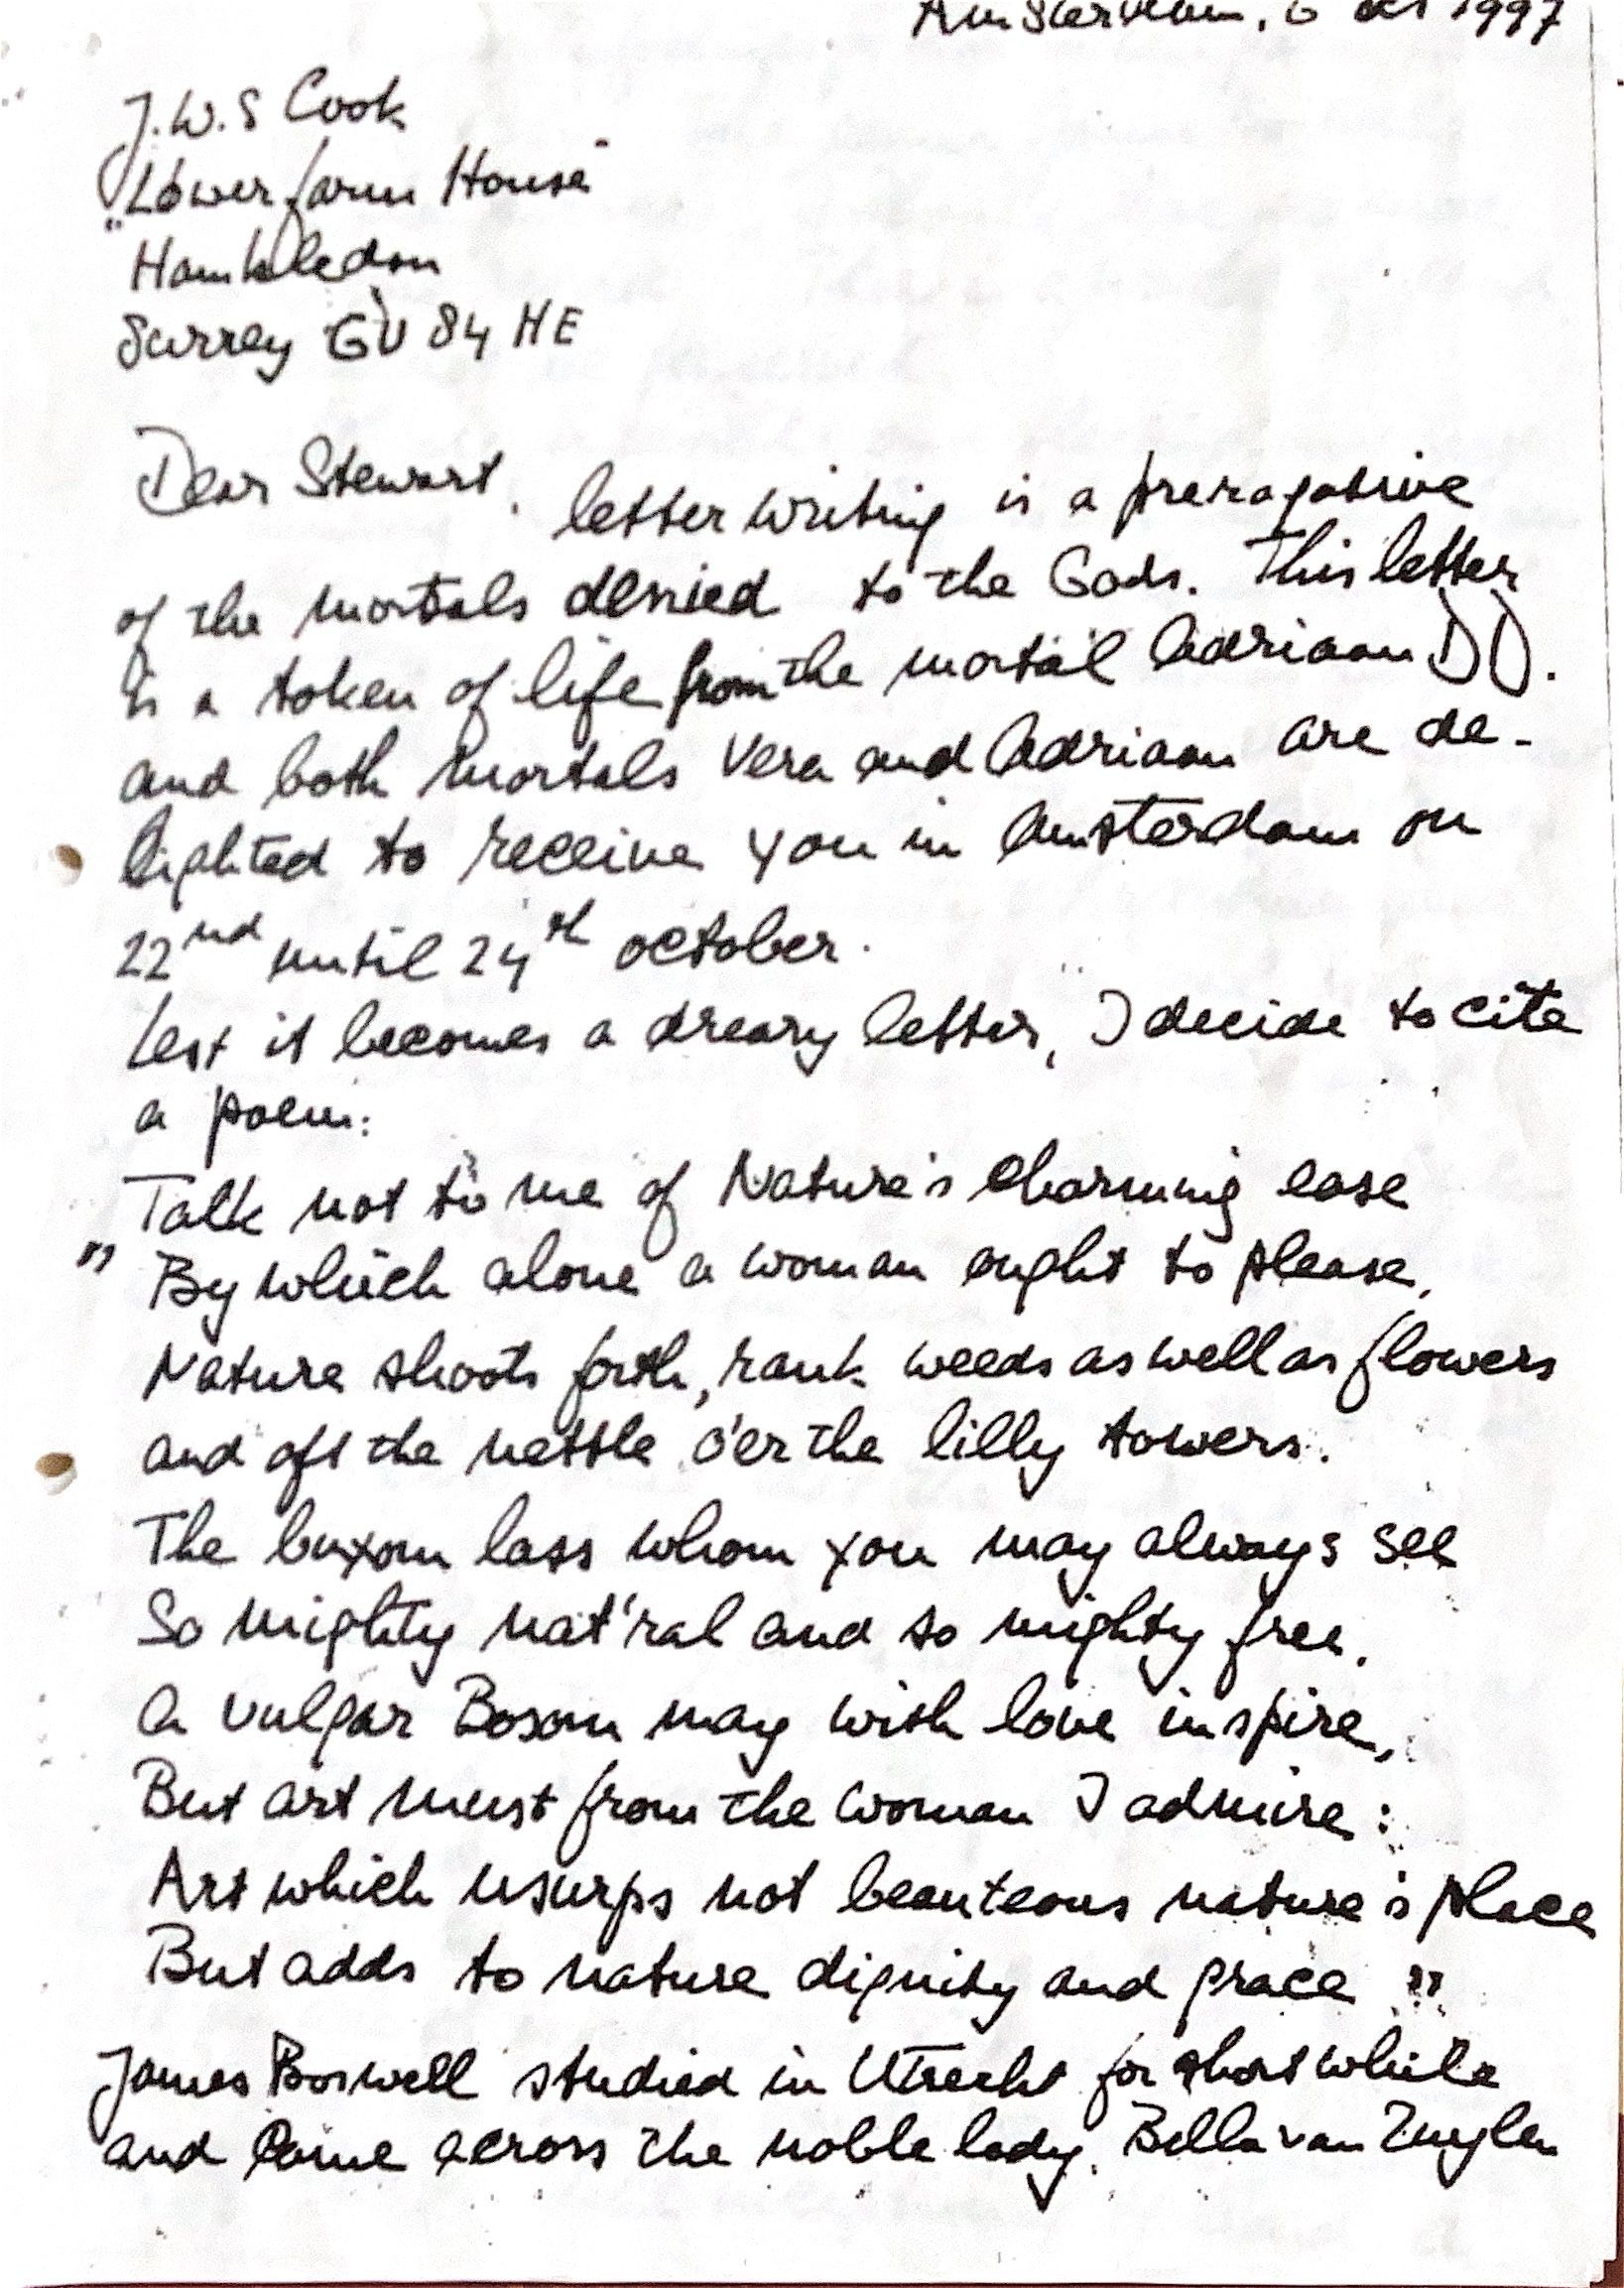 Amsterdam, 6 oct 1997
J.W.S Cook
"Lower farm House"
Hambledon
Surrey GU 84 HE
Dear Stewart. letter writing is a preragative
of the mortals denied to the Gods. This letter
is a token of life from the mortal Adriaan DD.
and both mortals Vera and Adriaan are de-
lighted to receive you in Amsterdam on
22nd until 24th october.
Lest it becomes a dreary letter, I decide to cite
a poem:
Talk not to me of Nature's charming ease
" By which alone a woman ought to please,
Nature shoots forth, rank weeds as well as flowers
and oft the nettle o'er the lilly towers.
The buxom lass whom you may always see
So mighty nat'ral and so mighty free,
A vulgar Bosom may with love inspire,
But art must from the woman I admire:
Art which usurps not beauteous nature's place
But adds to nature dignity and grace "
James Boswell studied in Utrecht for short while
and came across the noble lady, Bella van Zuylen